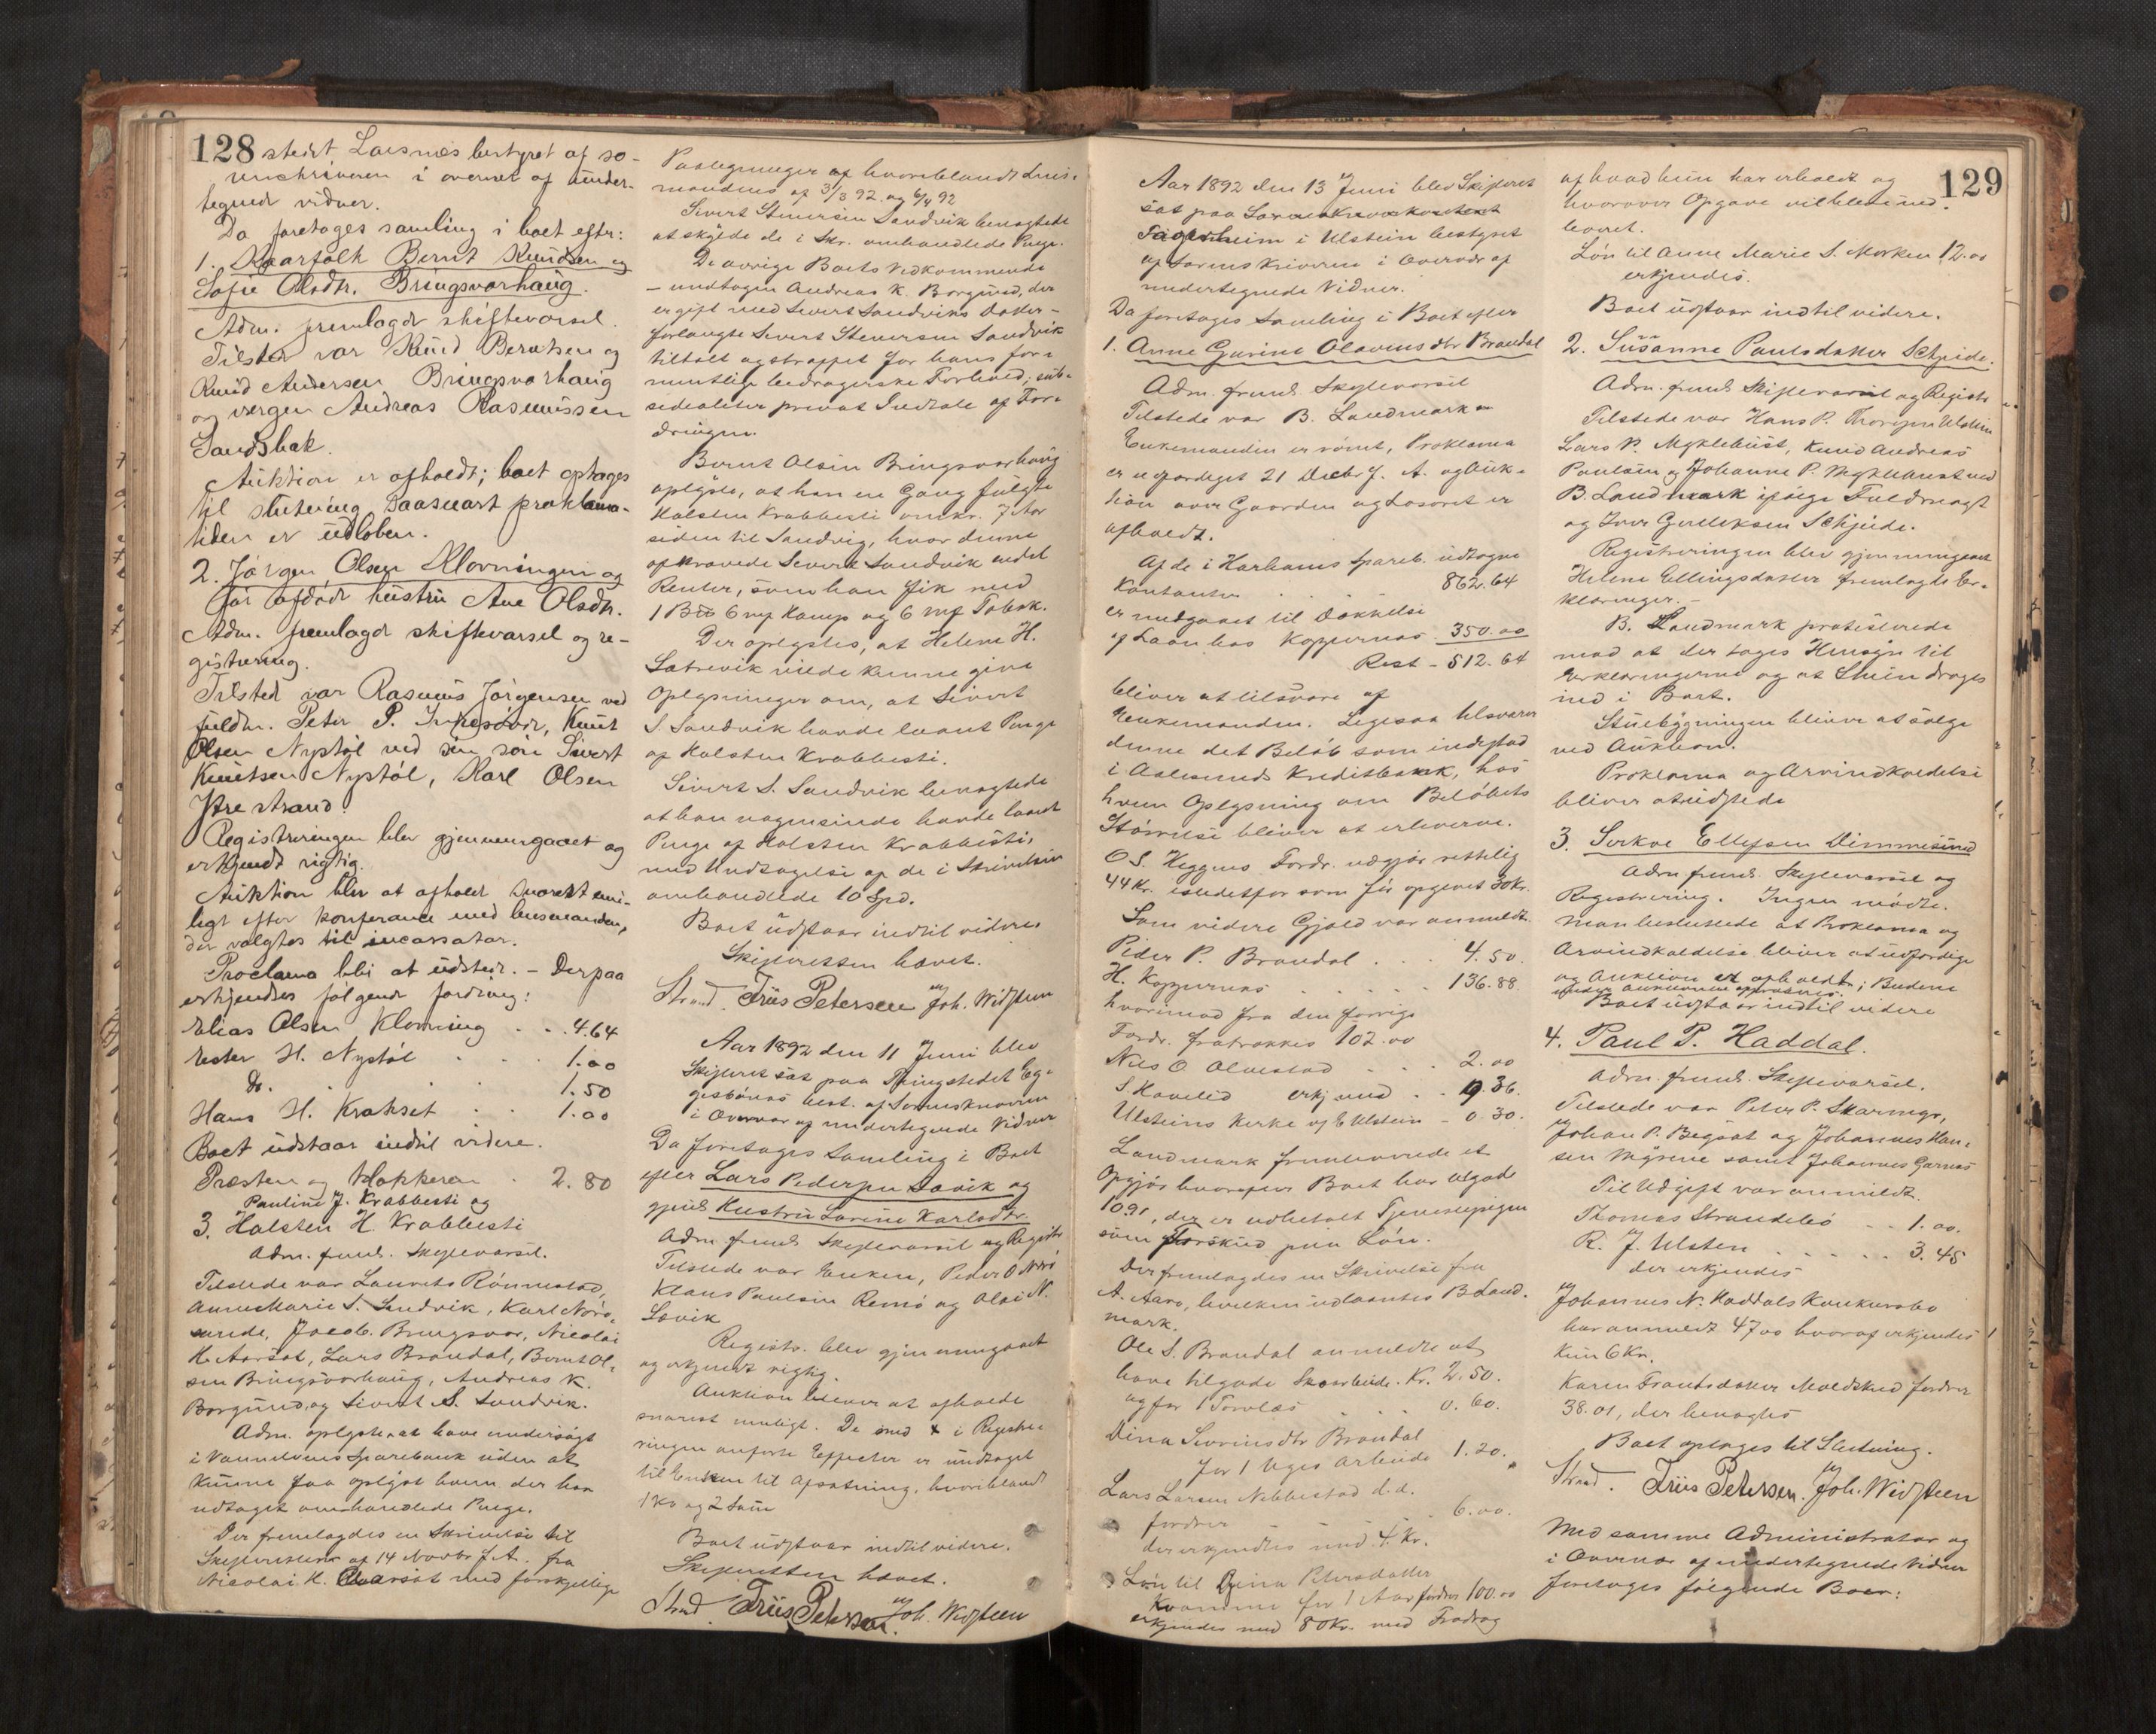 128
stedet Larsnes bestyret af so-
renskriveren i overvær af under-
tegnede vidner.
Da foretoges samling i boet efter:
1. Kaarfolk Bernt Knudsen og
Sofie Olsdtr. Bringsvorhaug.
Adm. fremlagde skiftevarsel.
Tilstede var Knud Berntsen og
Knud Andersen Bringsvorhaug
og værgen Andreas Rasmussen
Sandsbak.
Auktion er afholdt; boet optages
til slutning saasnart proklama-
tiden er udløben.
2. Jørgen Olsen Kløvningen og
før afdøde hustru Ane Olsdtr.
Adm. fremlagde skiftevarsel og re-
gistrering.
Tilstede var Rasmus Jørgensen ved
fuldm. Peter P. Knut
Olsen Nystøl ved sin søn Sivert
Knutsen Nystøl, Karl Olsen
Ytrestrand.
Registreringen blev gjennemgaaet og
erkjendt rigtig.
Auktion blir at afholde snarest mu-
ligt efter konferance med lensmanden,
der valgtes til incassator.
Proclama bli at udstede. - Derpaa
erkjendtes følgende fordring:
Elias Olsen Kløvning . . 4.64
Ester H. Nystøl . . 1.00
Do. . . . 1.50
Hans H. Krakset . . 1.00
Boet udstaar indtil videre.
Præsten og klokkeren . 2.80
Pauline J. Krabbesti og
3. Halsten H. Krabbesti
Adm. freml. Skiftevarsel.
Tilstede var Laurits Rønnestad,
Anne Marie S. Sandvik, Karl Nord-
strande, Jacob Bringsvor, Nicolai
H. Aarsæt, Lars Brandal, Bernt Ol-
sen Bringsvorhaug, Andreas K.
Borgund og Sivert S. Sandvik.
Adm. oplyste at have undersøgt
i Vannelvens Sparebank uden at
kunne faa oplyst hvem der har
udtaget omhandlede Penge.
Der fremlagdes en Skrivelse til
Skifteretten af 14 Novbr f. A. fra
Nicolai H. Aarsæt med forskjellige
Paategninger af hvoriblandt Lens-
mandens af 3/3 92 og 6/4 92
Sivert Steversen Sandvik benægtede
at skylde de i Skr. omhandlede Penge.
De øvrige Boets Vedkommende
- undtagen Andreas K. Borgund, der
er gift med Sivert Sandviks Datter -
forlangte Sivert Steversen Sandvik
tiltalt og straffet for hans for-
mentlige bedragerske Forhold, sub-
sidealiter privat Indtale af For-
dringen.
Bernt Olsen Bringsvorhaug
oplyste, at han en Gang fulgte
Halsten Krabbesti omkr. 7 Aar
siden til Sandvig, hvor denne
afkrævede Sivert Sandvik endel
Renter, som han fik med
1 6 mf Hamp og 6 mf Tobak.
Der oplystes, at Helene H.
Sætrevik vilde kunne give
Oplysninger om, at Sivert
S. Sandvik havde laant Penge
af Halsten Krabbesti.
Sivert S. Sandvik benægtede
at han nogensinde havde laant
Penge af Halsten Krabbesti,
med Undtagelse af de i Skrivelsen
omhandlede 10 Spd.
Boet udstaar indtil videre
Skifteretten hævet.
Strand. Friis Petersen Joh. Widsteen
Aar 1892 den 11 Juni blev
Skifteret sat paa Thingstedet Eg-
gesbønes best. af Sorenskriveren
i Overvær af undertegnede Vidner
Da foretoges Samling i Boet
efter Lars Pedersen Sævik og
gjenl. Hustru Larine Karlsdtr.
Adm. freml. Skiftevarsel og Registr.
Tilstede var Enken, Peder O
Klaus Paulsen Remø og Olai N.
Sævik
Registr. blev gjennemgaaet
og erkjendt rigtig.
Auktion bliver at afholde
snarest muligt. De med x i Registre-
ringen anførte Effecter er undtaget
til Enken til Afsætning, hvoriblandt
1 Ko og 2 Sau
Boet udstaar indtil videre.
Skifteretten hævet.
Strand. Friis Petersen. Joh. Widsteen
129
Aar 1892 den 13 Juni blev Skifteret
sat paa Sorenskriverkontoret
Fagerheim i Ulstein bestyret
af Sorenskriveren i Overvær af
undertegnede Vidner.
Da foretoges Samling i Boet efter
1. Anne Gurine Olavusdtr Brandal
Adm. freml. Skiftevarsel
Tilstede var B. Landmark
Enkemanden er rømt, Proklama
er udfærdiget 21 Decbr f. A. og Auk-
tion over Gaarden og Løsøret er
afholdt.
Af de i Harhams Spareb. udtagne
Kontanter . . . 862.64
er medgaaet til Dækkelse
af Laan hos Koppernæs 350.00
Rest - 512.64
bliver at tilsvare af
Enkemanden. Ligesaa tilsvarer
denne det Beløb som indestod
i Aalesunds Kreditbank, hos
hvem Oplysning om Beløbets
Størrelse bliver at erhverve.
O S. Heggens Fordr. udgjør rettelig
44 Kr. istedetfor som før opgivet 30 Kr.
Som videre Gjæld var anmeldt.
Peder P. Brandal . . . 4.50.
H. Koppernæs . . . . . 136.88.
hvorimod fra den forrige
Fordr. fratrækkes 102.00
Nils O Alvestad . . . 2.00
S. Havelid erkjend . . 9.36.
Ulsteins Kirke af E Ulstein - 0.30.
Landmark fremleverede et
Opgjør hvorefter Boet har tilgode
1091, der er udbetalt Tjenestepigen
som Forskud paa Løn.
Der fremlagdes en Skrivelse fra
A. Aarø, hvilken udlaantes B Land-
mark.
Ole S. Brandal anmeldte at
have tilgode Skoarbeide. Kr. 2.50.
og for 1 Torvlæs . . . 0.60.
Dina Severinsdtr Brandal
for 1 Uges Arbeide 1.20.
Lars Larsen Nebbestad d.d.
fordrer . . . 6.00.
der erkjendtes med 4 Kr.
Løn til Petersdatter
Kvamme for 1 Aar fordrer 100.00
erkjendes med 80 Kr. med Fradrag
af hvad hun har erholdt og
hvorover Opgave vil blive ind-
leveret.
Løn til Anne Marie S. Morken 12.00
erkjendes.
Boet udstaar indtil videre.
2. Susanne Paulsdatter Schjeide.
Adm. freml. Skiftevarsel og Registr
Tilstede var Hans P. Thorsen Ulstein
Lars P. Myklebust, Knud Andreas
Paulsen og Johanne P. Myklebust ved
B. Landmark ifølge Fuldmagt
og Iver Gulleksen Schjeide.
Registreringen blev gjennemgaaet
Helene Ellingsdatter fremlagte Er-
klæringer. -
B. Landmark protesterede
mod at der toges Hensyn til
Erklæringerne og at Stuen droges
ind i Boet.
Stuebygningen bliver at sælge
ved Auktion.
Proklama og Arvindkaldelse
bliver at udstede
3. Serkoe Ellefsen Dimmesund
Adm. freml. Skiftevarsel og
Registrering. Ingen mødte.
Man besluttede at Proklama og
Arvindkaldelse bliver at udfærdige
og Auktion at afholdes; Budene
under Auktionen approberes.
Boet udstaar indtil videre
4. Paul P. Haddal.
Adm. freml. Skiftevarsel.
Tilstede var Peter P. Skeringe,
Johan P. Begset og Johannes Han-
sen Myrene samt Johannes Garnes
Til Udgift var anmeldt.
Thomas Strandebø . . 1.00.
R. J. Ulsten . . . . . 3.45
der erkjendes
Johannes N. Haddals Konkursbo
har anmeldt 47.00 hvoraf erkjendes
kun 6 Kr.
Karen Frantsdatter Moldskred fordrer
38.01, der benægtes
Boet optages til Slutning.
Strand. Friis Petersen. Joh. Widsteen
Med samme Administrator og
i Overvær af undertegnede Vidner
foretoges følgende Boer: